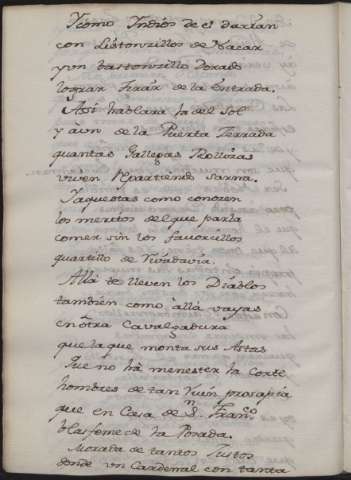 Y como Yndios de el Darían
con Listonzillos de Nacar
y un bastonzillo Dorado
lograr tirár de la Entrada.
Asi hablara la del Sol
y aun de la Puerta Serrada
quantas Gallegas Rollizas
viven Repartiendo sarna.
Y aquestas como conocen
los meritos del que parla
comer sin los favorcillos
quartillo de Rivadavia.
Allá te lleven los Diablos
tambien como allá vayas
en otra Cavalgadura
que la que monta sus Astas
Que no há menester la Corte
hombres de tan Ruin prosapia
que en Casa de Sn. Franco.
blasfeme de la Posada.
Morada de tantos Justos
donde un Cardenal con tanta